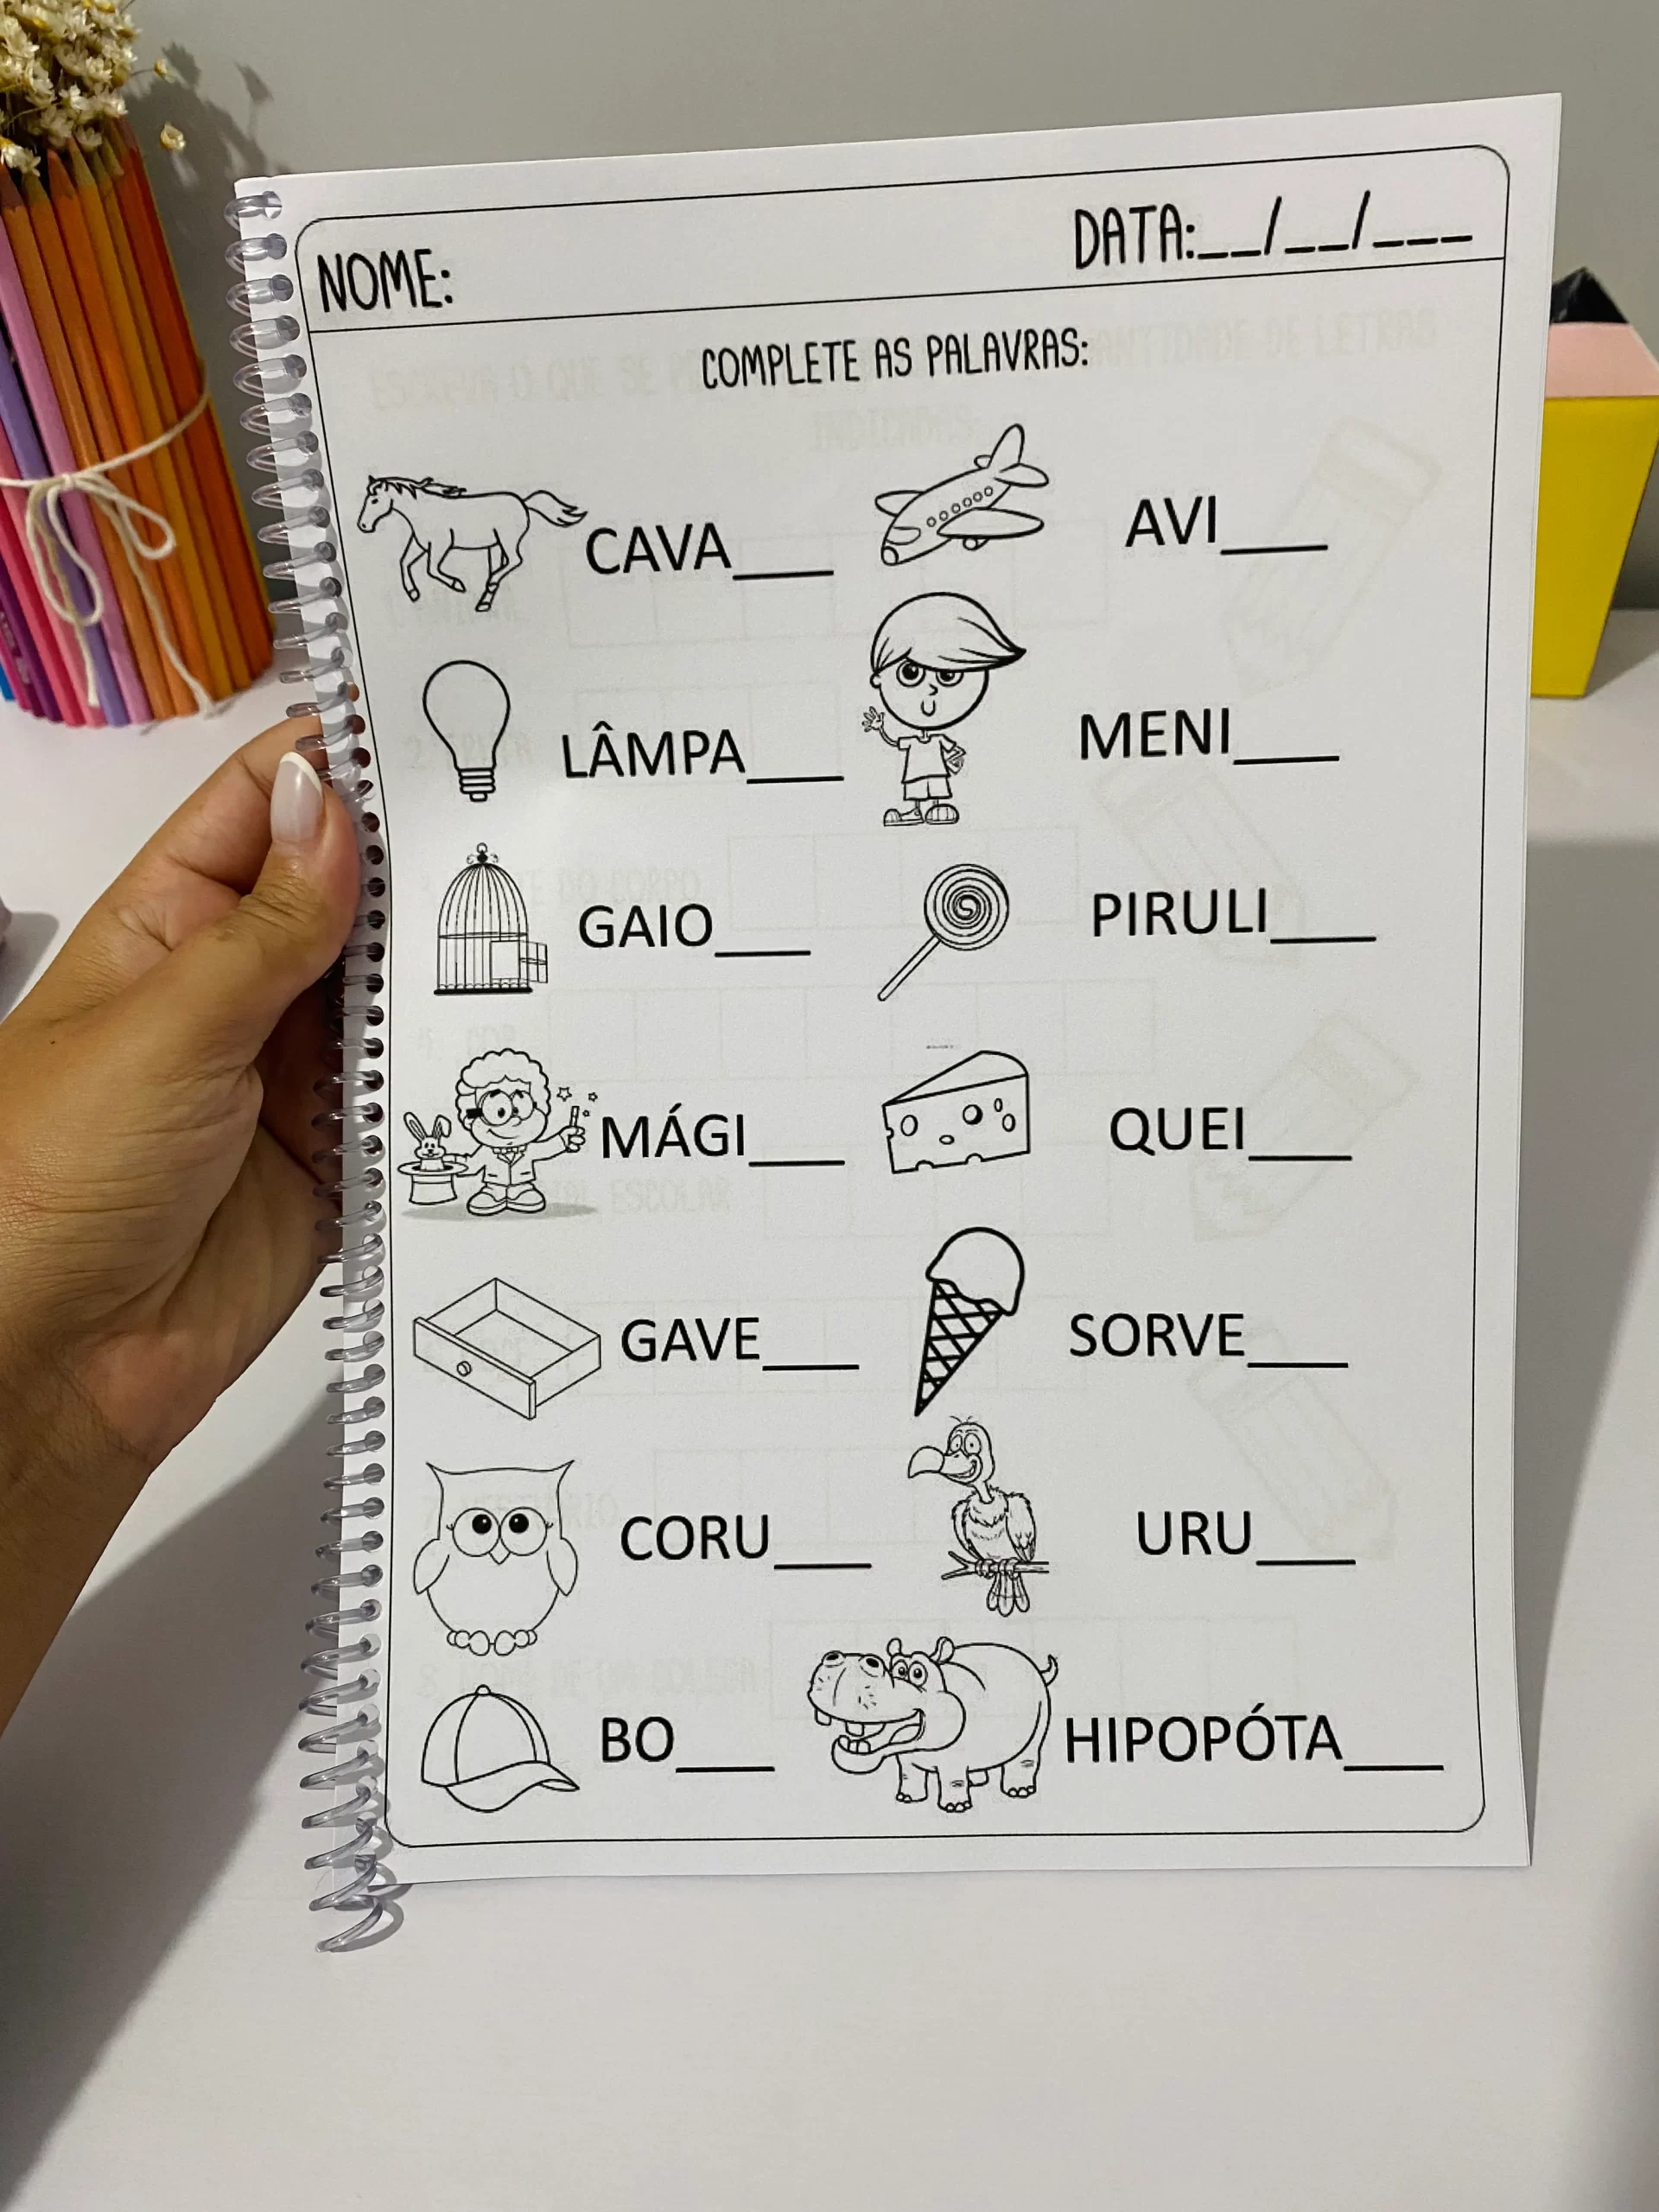 NOME:
DATA:__/__/___
COMPLETE AS PALAVRAS:
CAVA___
AVI___
LÂMPA___
MENI___
GAIO___
PIRULI___
MÁGI___
QUEI___
GAVE___
SORVE___
CORU___
URU___
BO___
HIPOPÓTA___